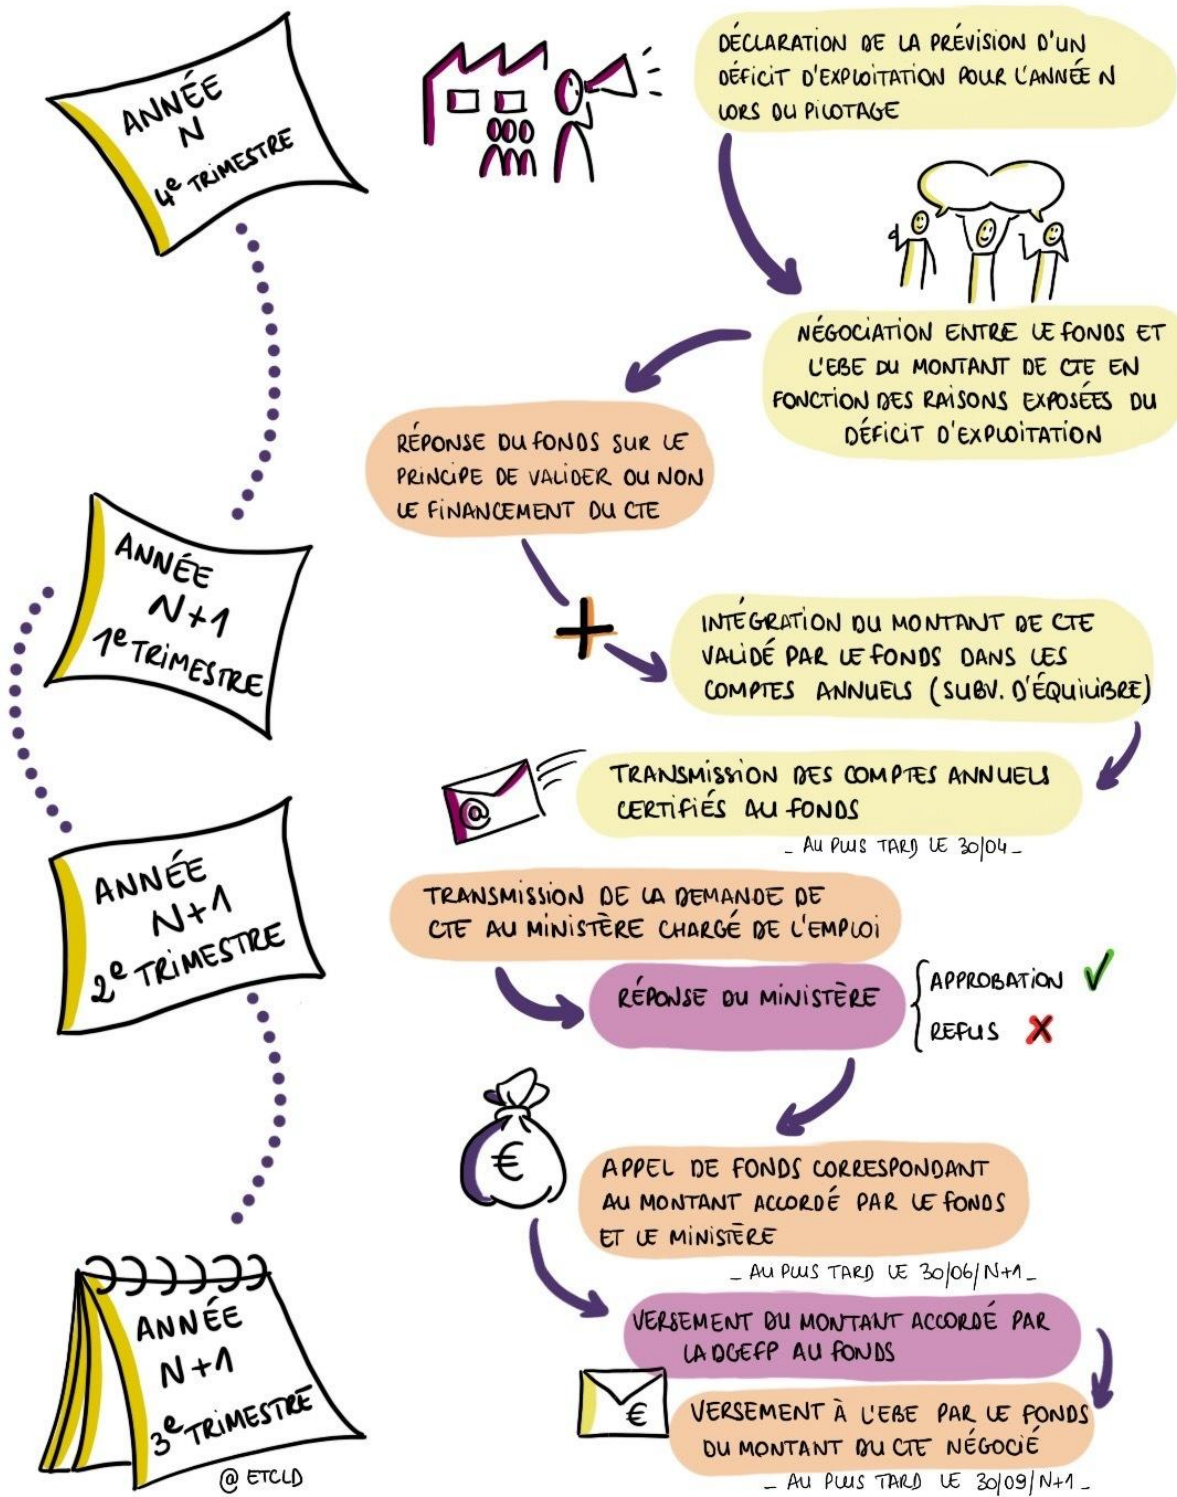 ANNÉE
N
4e TRIMESTRE
DÉCLARATION DE LA PRÉVISION D'UN
DÉFICIT D'EXPLOITATION POUR L'ANNÉE N
LORS DU PILOTAGE
NÉGOCIATION ENTRE LE FONDS ET
L'EBE DU MONTANT DE CTE EN
FONCTION DES RAISONS EXPOSÉES DU
DÉFICIT D'EXPLOITATION
RÉPONSE DU FONDS SUR LE
PRINCIPE DE VALIDER OU NON
LE FINANCEMENT DU CTE
ANNÉE
N+1
1e TRIMESTRE
INTÉGRATION DU MONTANT DE CTE
VALIDÉ PAR LE FONDS DANS LES
COMPTES ANNUELS (SUBV. D'ÉQUILIBRE)
@
TRANSMISSION DES COMPTES ANNUELS
CERTIFIÉS AU FONDS
_ AU PLUS TARD LE 30/04 _
ANNÉE
N+1
2e TRIMESTRE
TRANSMISSION DE LA DEMANDE DE
CTE AU MINISTÈRE CHARGÉ DE L'EMPLOI
RÉPONSE DU MINISTÈRE
APPROBATION
REFUS
€
APPEL DE FONDS CORRESPONDANT
AU MONTANT ACCORDÉ PAR LE FONDS
ET LE MINISTÈRE
_ AU PLUS TARD LE 30/06/N+1 _
ANNÉE
N+1
3e TRIMESTRE
@ ETCLD
VERSEMENT DU MONTANT ACCORDÉ PAR
LA DGEFP AU FONDS
€
VERSEMENT À L'EBE PAR LE FONDS
DU MONTANT DU CTE NÉGOCIÉ
_ AU PLUS TARD LE 30/09/N+1 _